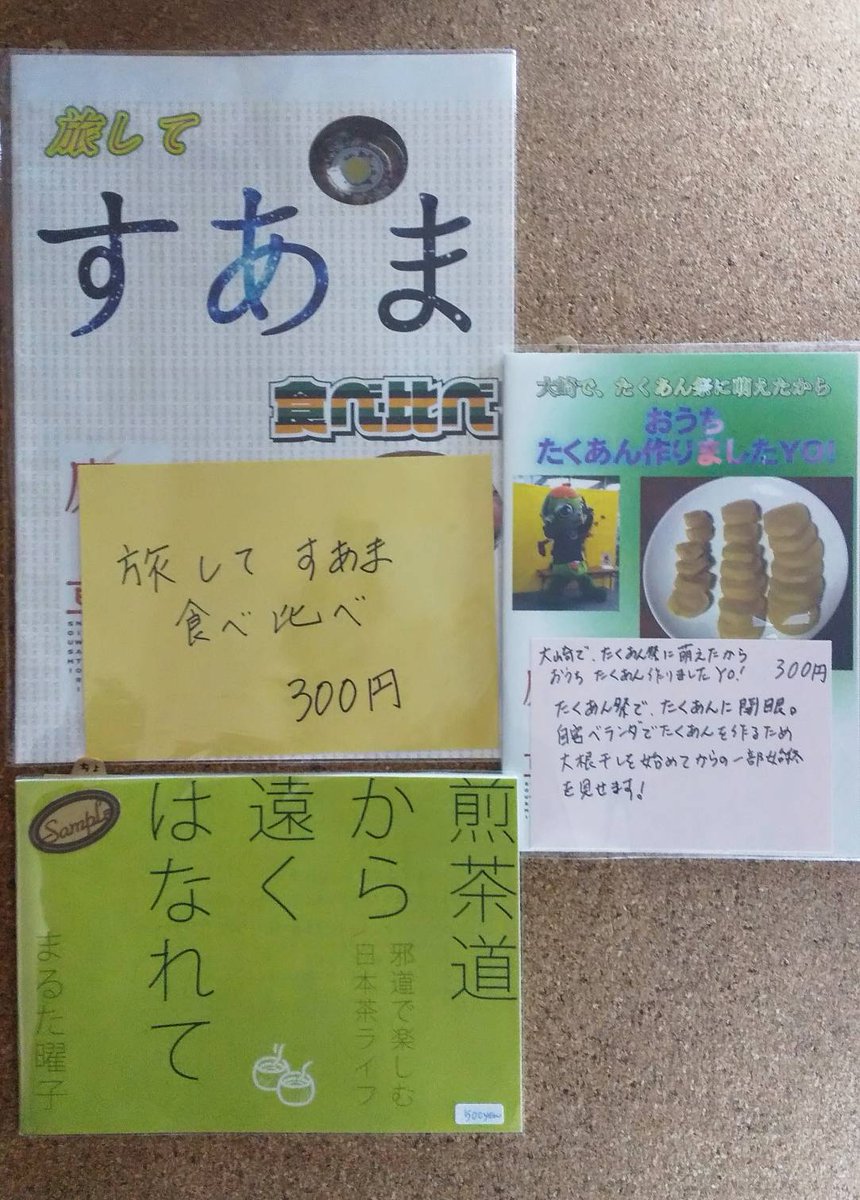 旅して
すあま
食べ比べ
旅して すあま
食べ比べ
300円
大崎で、たくあん祭に萌えたから
おうち
たくあん作りましたYO!
大崎で、たくあん祭に萌えたから
おうち たくあん作りましたYO!
300円
たくあん祭で、たくあんに開眼。
自宅ベランダでたくあんを作るため
大根干しを始めてからの一部始終
を見せます!
Sample
煎茶道
から
遠く
はなれて
邪道で楽しむ
日本茶ライフ
まるた曜子
500yen